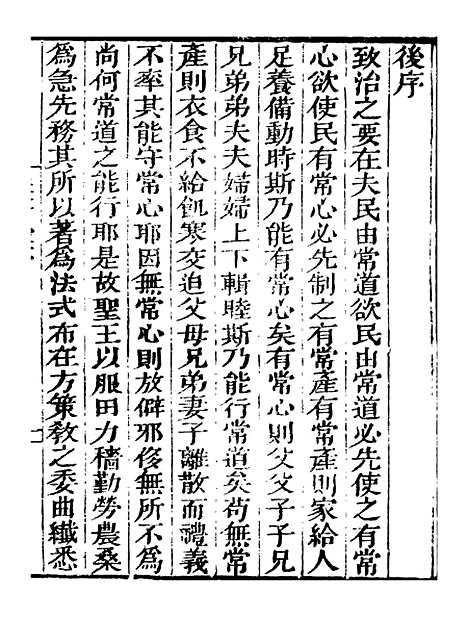 後序
致治之要在夫民由常道欲民由常道必先使之有常
心欲使民有常心必先制之有常產有常產則家給人
足養備動時斯乃能有常心矣有常心則父父子子兄
兄弟弟夫夫婦婦上下輯睦斯乃能行常道矣苟無常
產則衣食不給飢寒交迫父母兄弟妻子離散而禮義
不率其能守常心耶因無常心則放僻邪侈無所不為
尚何常道之能行耶是故聖王以服田力穡勤勞農桑
為急先務其所以著為法式布在方策教之委曲纖悉